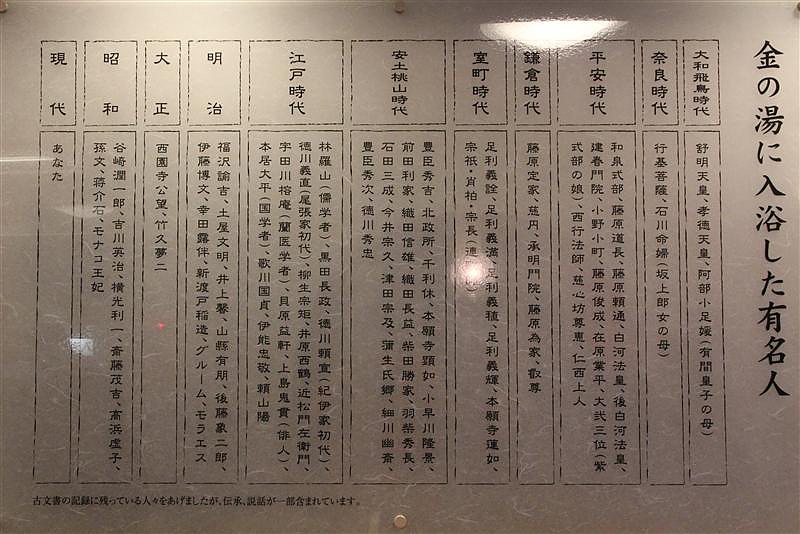 金の湯に入浴した有名人
大和飛鳥時代
舒明天皇、孝徳天皇、阿部小足媛(有間皇子の母)
奈良時代
行基菩薩、石川命婦(坂上郎女の母)
平安時代
和泉式部、藤原道長、藤原頼通、白河法皇、後白河法皇、
建春門院、小野小町、藤原俊成、在原業平、大弐三位(紫
式部の娘)、西行法師、慈心坊尊恵、仁西上人
鎌倉時代
藤原定家、慈円、承明門院、藤原為家、叡尊
室町時代
足利義詮、足利義満、足利義稙、足利義輝、本願寺蓮如、
宗祇・肖柏・宗長(連
安土桃山時代
豊臣秀吉、北政所、千利休、本願寺顕如、小早川隆景、
前田利家、織田信雄、織田長益、柴田勝家、羽柴秀長、
石田三成、今井宗久、津田宗及、蒲生氏郷、細川幽斎
豊臣秀次、徳川秀忠
江戸時代
林羅山(儒学者)、黒田長政、徳川頼宣(紀伊家初代)、
徳川義直(尾張家初代)、柳生宗矩、井原西鶴、近松門左衛門
宇田川榕庵(蘭医学者)、貝原益軒、上島鬼貫(俳人)、
本居大平(国学者)、歌川国貞、伊能忠敬、頼山陽
明治
福沢諭吉、土屋文明、井上馨、山縣有朋、後藤象二郎、
伊藤博文、幸田露伴、新渡戸稲造、グルーム、モラエス
大正
西園寺公望、竹久夢二
昭和
谷崎潤一郎、吉川英治、横光利一、斎藤茂吉、高浜虚子、
孫文、蒋介石、モナコ王妃
現代
あなた
古文書の記録に残っている人々をあげましたが、伝承、説話が一部含まれています。